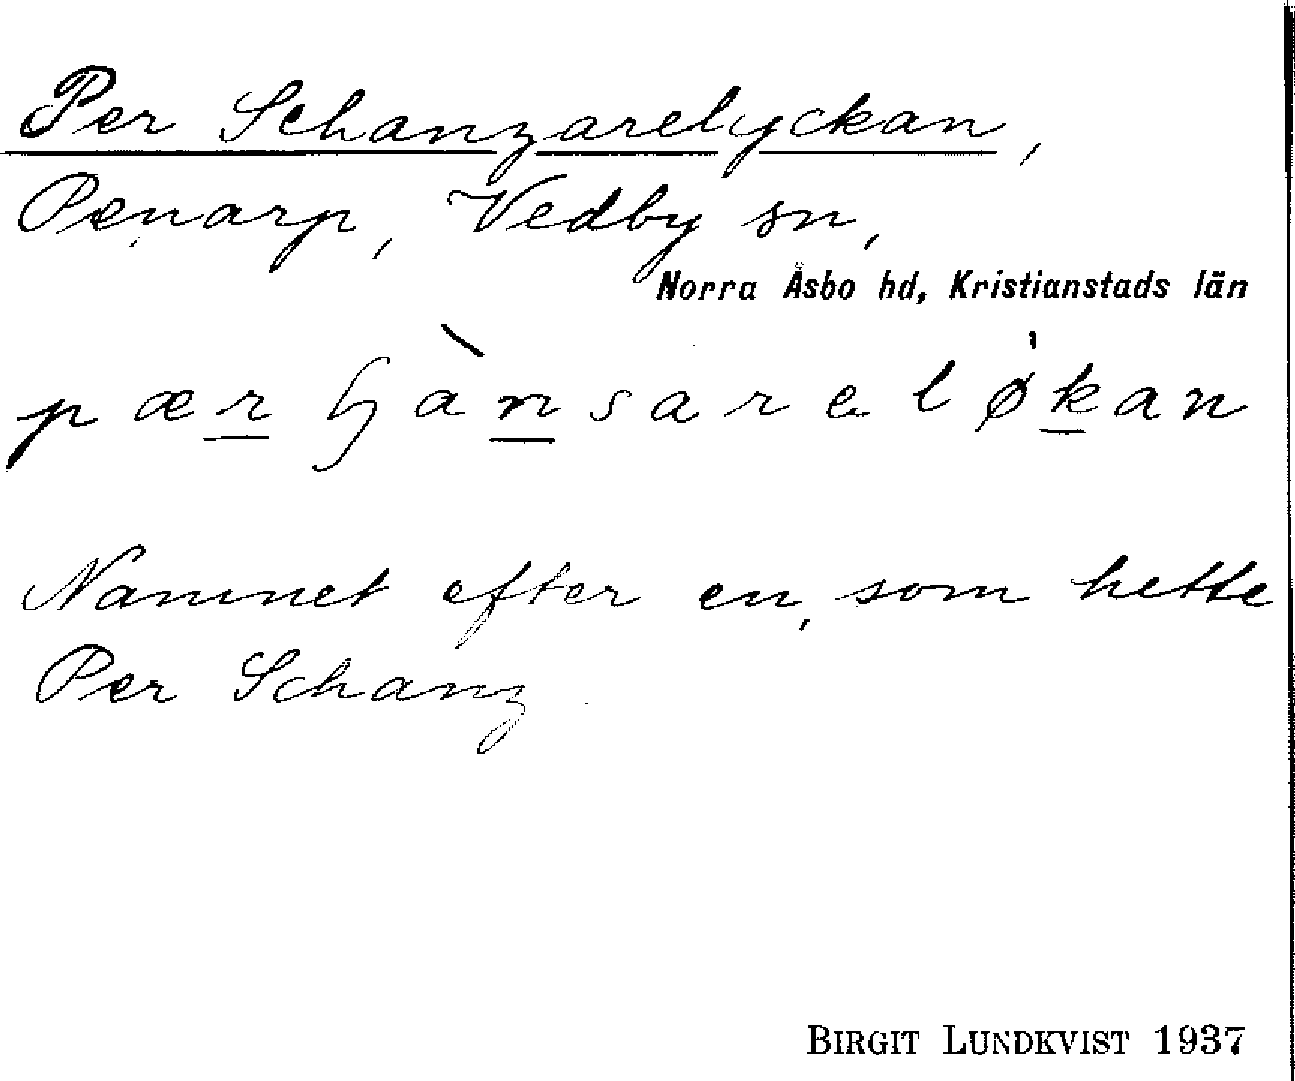 Per Schanzarelyckan,
Penarp, Vedby sn,
Norra Åsbo hd, Kristianstads län
pær ɧànsareløkan
Namnet efter en, som hette
Per Schanz.
BIRGIT LUNDKVIST 1937